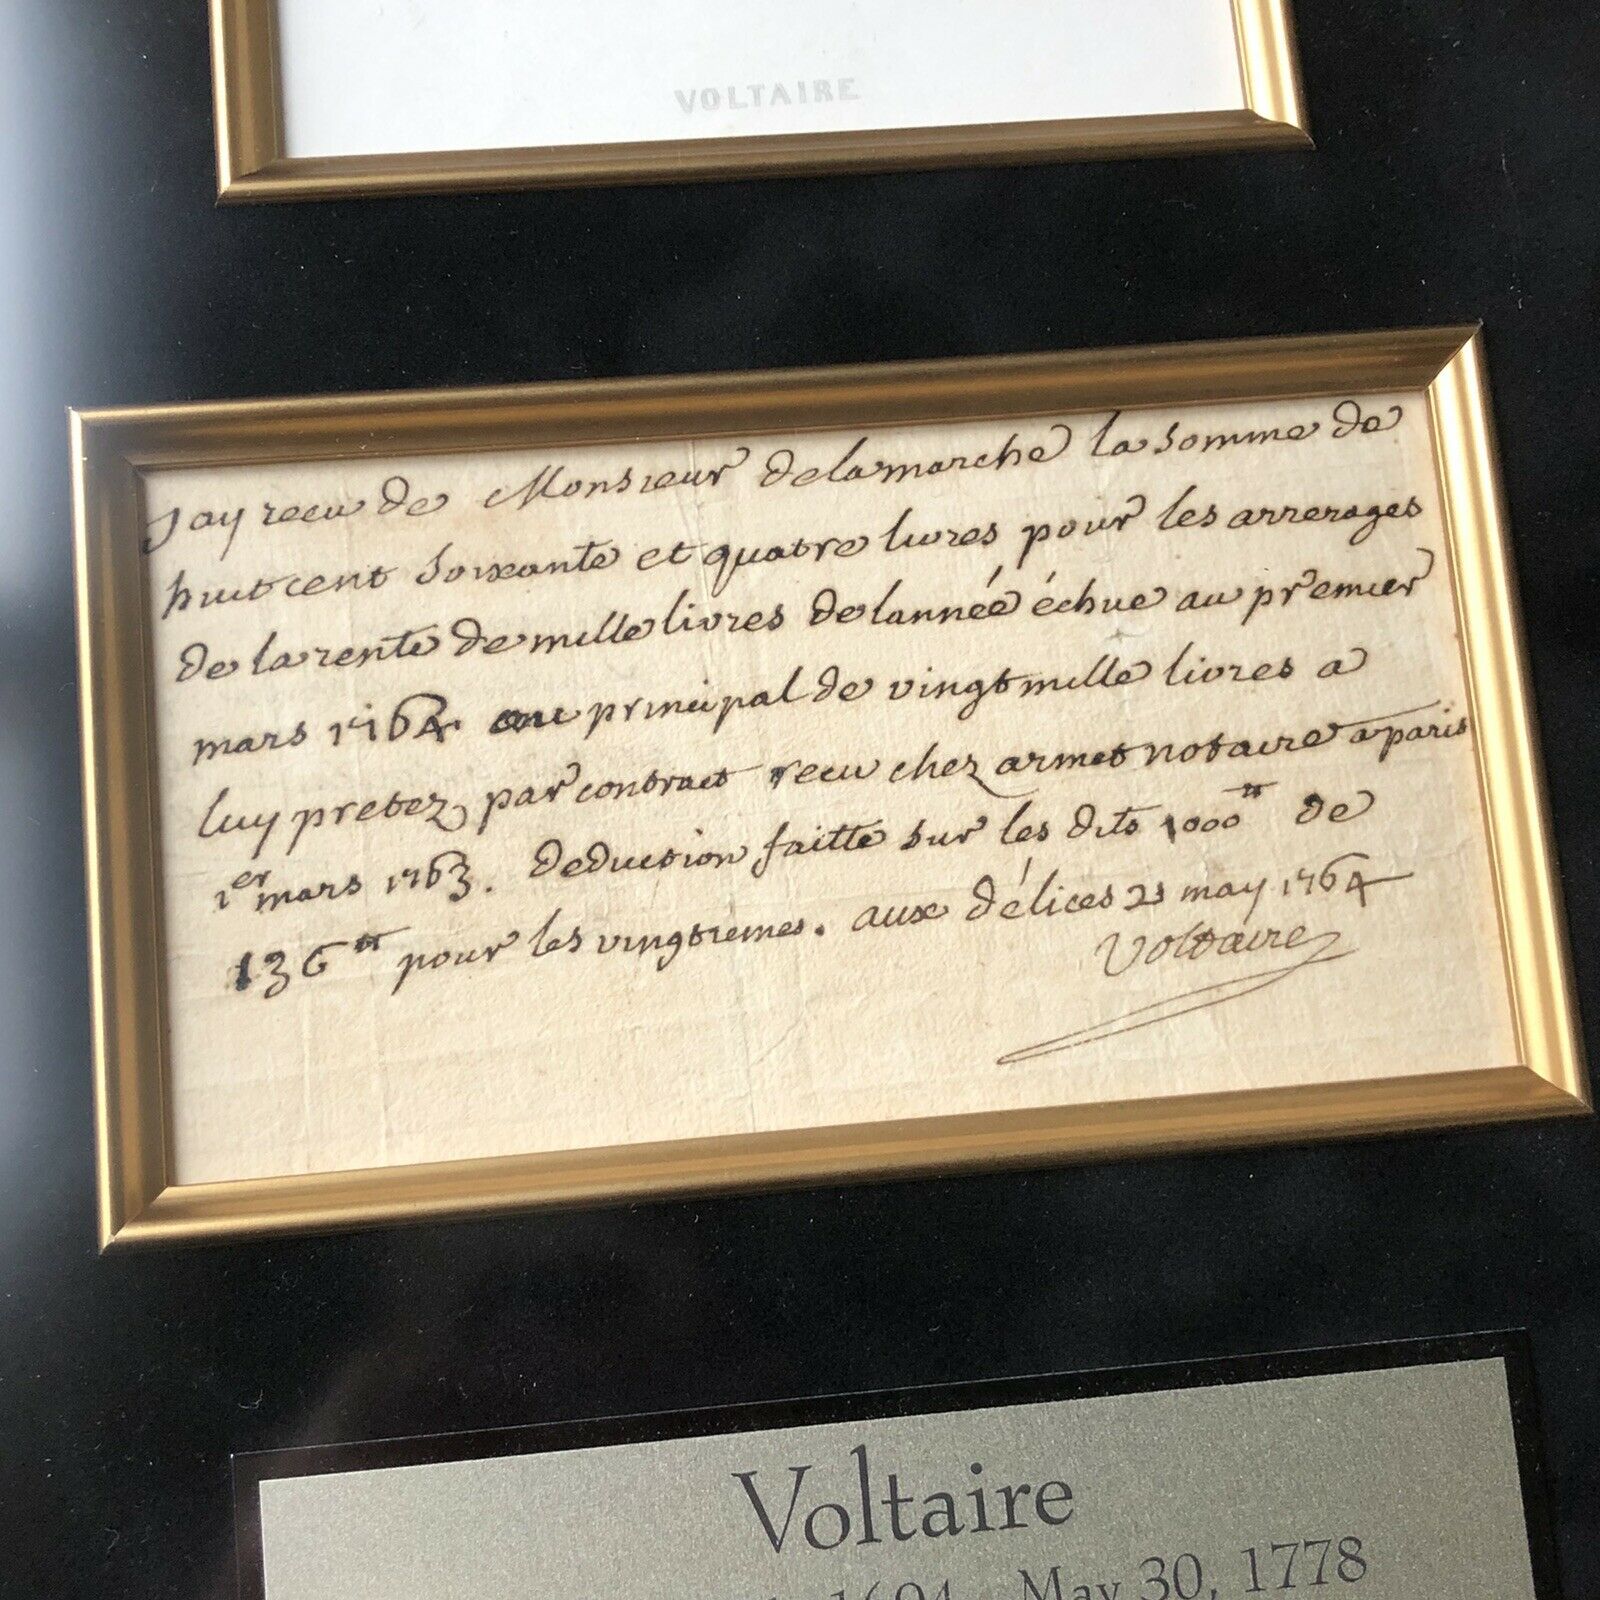 VOLTAIRE
Jay recu de Monsieur delamarche la somme de
huit cent soixante et quatre livres pour les arrerages
de la rente de mille livres de lanneé échue au premier
mars 1764 au principal de vingt mille livres a
luy pretez par contract recu chez armet notaire a paris
1er mars 1763. deduction faitte sur les dits 1000tt de
136tt pour les vingtiemes. aux délices 23 may 1764
Voltaire
Voltaire
May 30, 1778